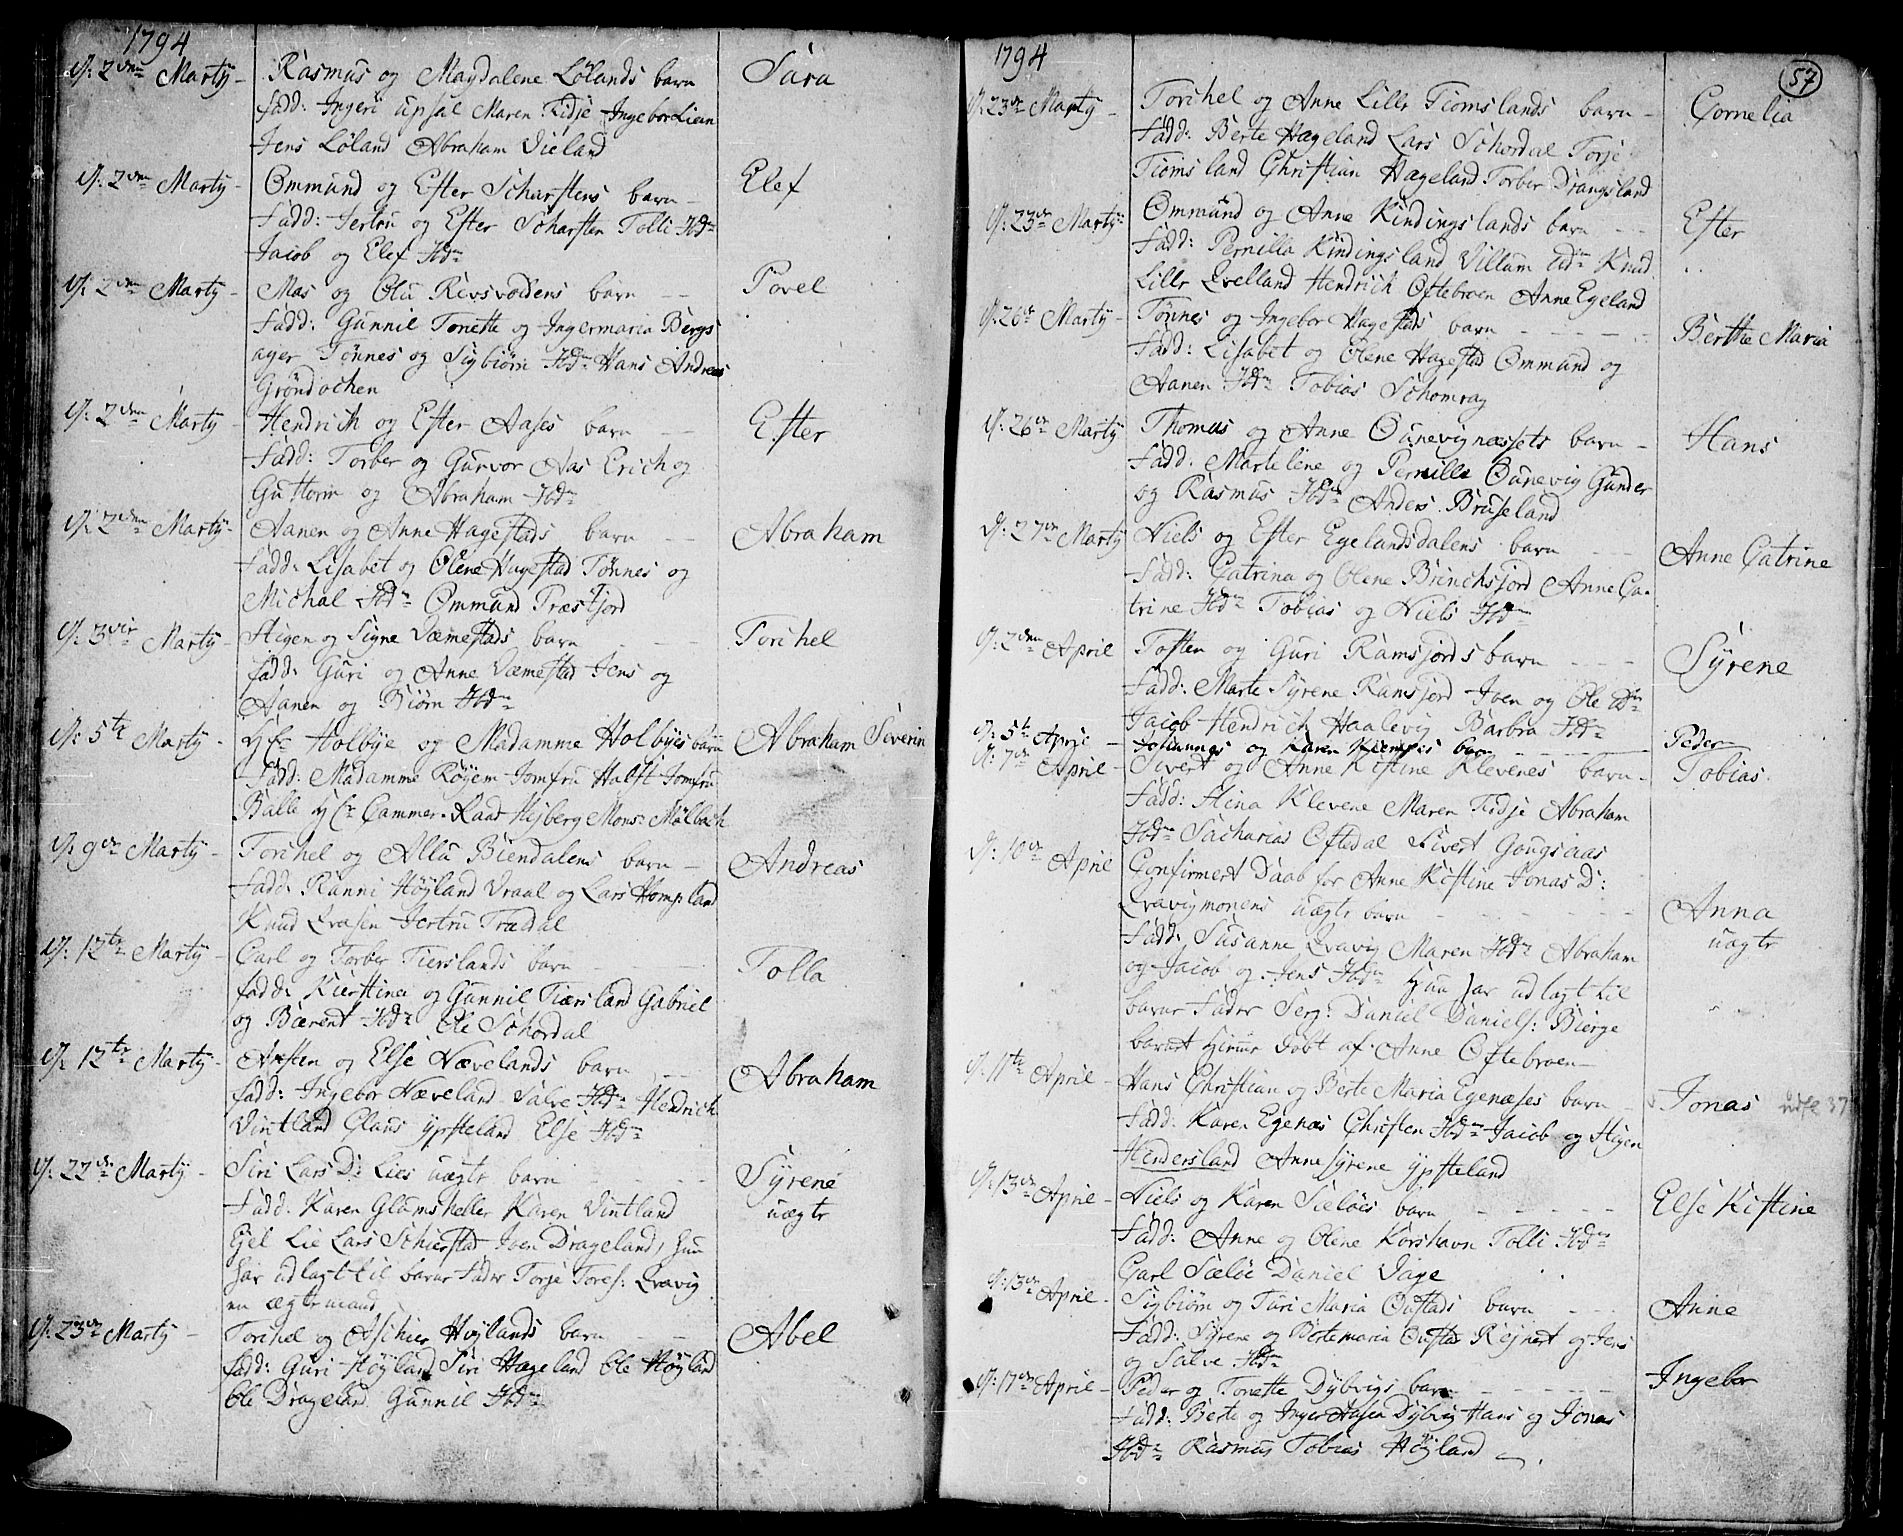 1794
d: 2den Marty - Rasmus og Magdalene Lölands barn Sara
fadd: Ingeri Upsal Maren Fidje Ingebor Lien
Jens Löland Abraham Vieland
d: 2den Marty - Ommund og Ester Scharstens barn - Elef
Fadd: Jertru og Ester Scharsten Tolli Ibdm
Jacob og Elef Ibdm
d: 2den Marty - Mas og Olu Revsvoldens barn Povel
Fadd: Gunnil Tonette og Ingermaria Bergs
ager Tönnes og Sigbiörn Ibdm Hans Andreas
Gröndochen
d: 2den Marty - Hendrich og Ester Aases barn Ester
Fadd: Torber og Gurvor Aas Erich og
Guttorm og Abraham Ibdm
d: 2den Marty - Aanen og Anne Hagestads barn Abraham
Fadd: Lisabet og Olene Hagestad Tönnes og
Michal Ibdm Ommund Præstfjord
d: 3die Marty - Stigen og Signe Væmestads barn Torchel
fadd: Guri og Anne Væmestad Jens og
Aanen og Biörn Ibdm
d: 5te Marty - Hr Holbye og Madamme Holbyes barn Abraham Severin
Fadd: Madamme Röyem Jomfru Halst Jomfru
Balle Hr Cammer-Raad Hejberg Mons: Mølbach
d: 9de Marty - Torchel og Allu Biendalens barn - Andreas
Fadd: Ranni Höyland Vraal og Lars Hompland
Knud Qvasen Jertru Trædal
d: 12te Marty - Carl og Torber Tierslands barn Tolla
fadd: Kierstina og Gunnil Tiersland Gabriel
og Bærent Ibdm Ole Schordal
d: 12te Marty - Arsten og Else Nævelands barn Abraham
fadd: Ingebor Næveland Salve Ibdm Hendrich
Vintland Clans Ypsteland Else Ibdm
d: 22de Marty - Siri Lars D: Lies uægte barn Syrene
Fadd: Karen Glamsheller Karen Vintland uægte
Ejel Lie Lars Schierstad Iven Drageland, hun
har udlagt til barne Fader Torje Tores: Qvavig
en ægtemand
d: 23de Marty - Torchel og Aschier Höylands barn Abel
fadd: Guri Höyland Siri Hægeland Ole Höyland
Ole Drageland Gunnil Ibdm
1794
57
d: 23de Marty - Torchel og Anne Lille Tiomslands barn - Cornelia
Fadd: Berte Hægeland Lars Schordal Torje
Tiomsland Christian Hægeland Torber Drangsland
d: 23de Marty Ommund og Anne Kindingslands barn Ester
Fadd: Pernilla Kindingsland Villum Ibdm Knud
Lille Qvelland Hendrich Oftebroen Anne Egeland
d: 26de Marty - Tönnes og Ingebor Hagestads barn Berthe Maria
Fadd: Lisabet og Olene Hagestad Ommund og
Aanen Ibdm Tobias Schomrag
d: 26de Marty Thomas og Anne Ounevignæssets barn - Hans
Fadd: Martelene og Pernille Ounevig Gunder
og Rasmus Ibdm Anders Bruseland
d: 27de Marty Niels og Ester Egelandsdalens barn Anne Catrine
Fadd: Catrina og Olene Brinchsjord Anne Ca-
trine Ibdm Tobias og Niels Ibdm
d: 2den April Tosten og Guri Ramsjords barn Syrene
Fadd: Marte Syrene Ramsjord Iven og Ole Ibdm
Jacob Hendrich Haalevig Barbra Ibdm
d: 5te April - Johannes og Karen Kiempes barn Peder
d: 7de April - Sivert og Anne Kistine Klevenes barn - Tobias
Fadd: Stina Klevene Maren Fidje Abraham
Ibdm Sacharias Oftedal Sivert Gougsaas
d: 10de April Confirmert Daab for Anne Kistine Jonas D:
Qvavigmonens uægte barn Anna
Fadd: Susanne Qvavig Maren Ibdm Abraham uægte
og Jacob og Jens Ibdm hun har udlagt til
barne Fader Serg: Daniel Daniels: Bierge
barnet hieme döbt af Anne Oftebroen -
d: 11te April - Hans Christian og Berte Maria Egenæses barn Jonas udfl 37
Fadd: Karen Egenæs Christen Ibdm Jacob og Stigen
Hendersland Anne Syrene Ypsteland
d: 13de April - Niels og Karen Sælöes barn Else Kistine
Fadd: Anne og Olene Korshavn Tolli Ibdm
Carl Sælöe Daniel Vage
d: 13de April - Sigbiörn og Turi Maria Oustads barn Anne
Fadd: Syrene og Bertemaria Oustad Rejnert og Jens
og Salve Ibdm
d: 17de April - Peder og Tonette Dybvigs barn Ingebor
Fadd: Berte og Inger Aasen Dybvig Hans og Jonas
Ibdm Rasmus Tobias Höyland